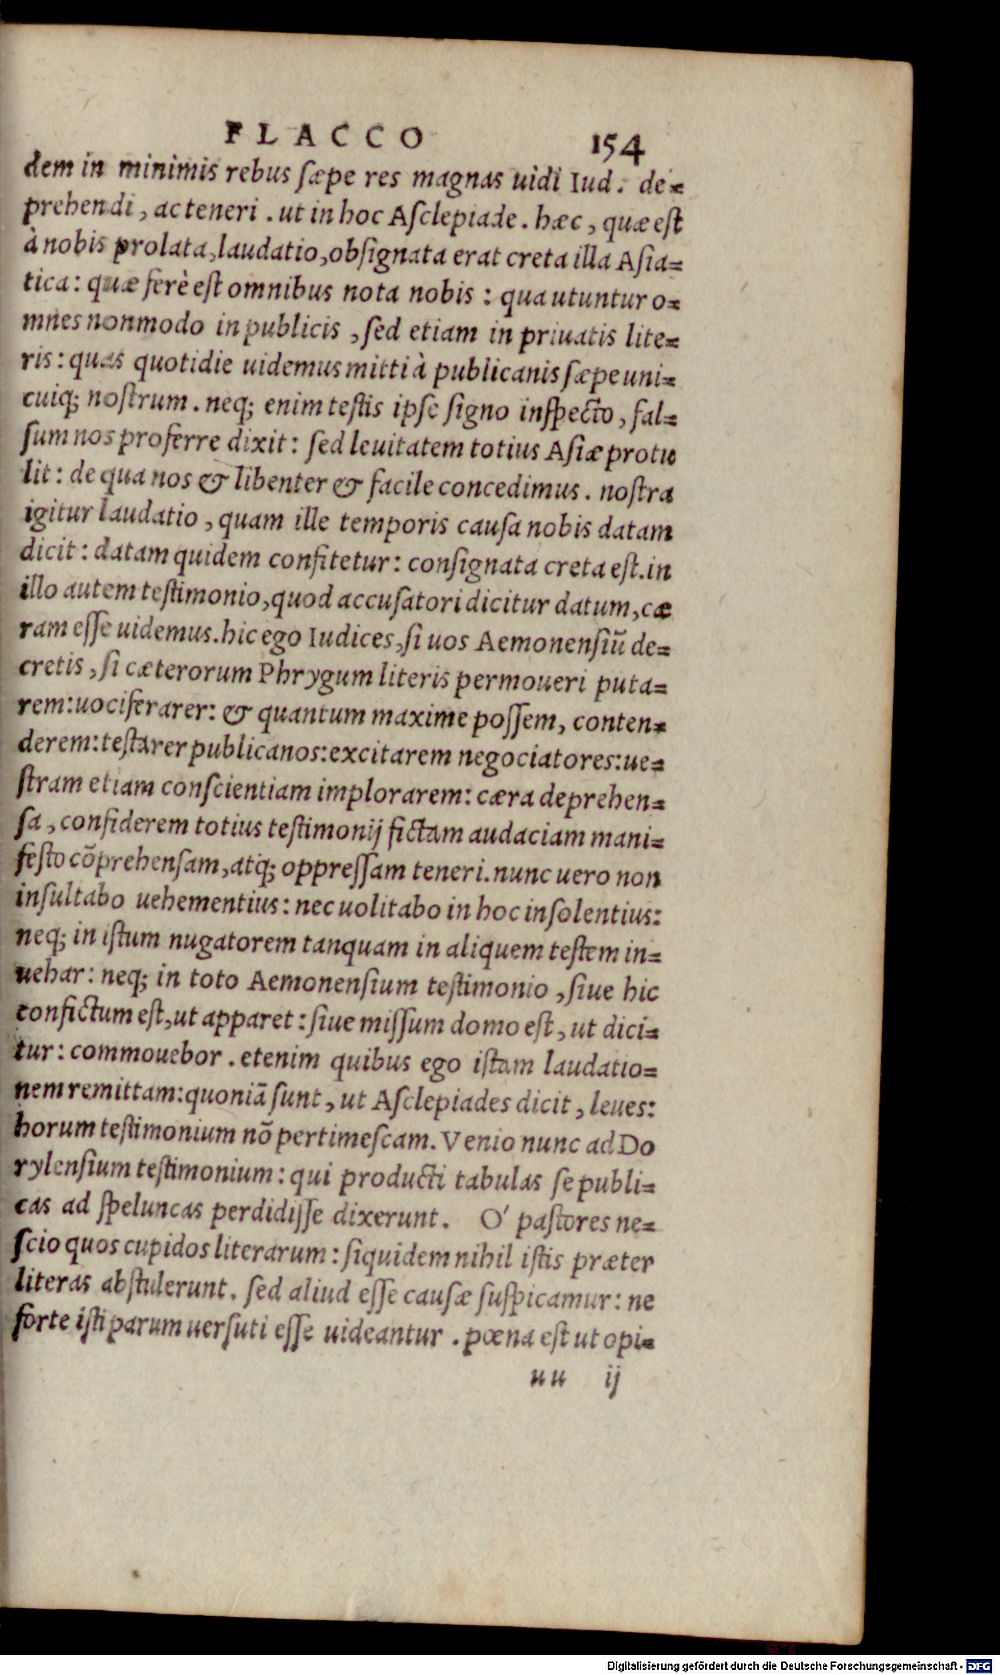 FLACCO 154
dem in minimis rebus sæpe res magnas uidi Iud. de=
prehendi, ac teneri. ut in hoc Asclepiade. hæc, quæ est
à nobis prolata, laudatio, obsignata erat creta illa Asia=
tica: quæ ferè est omnibus nota nobis: qua utuntur o=
mnes non modo in publicis, sed etiam in priuatis lite=
ris: quas quotidie uidemus mitti à publicanis sæpe uni=
cuiq; nostrum. neq; enim testis ipse signo inspecto, fal=
sum nos proferre dixit: sed leuitatem totius Asiæ protu
lit: de qua nos & libenter & facile concedimus. nostra
igitur laudatio, quam ille temporis causa nobis datam
dicit: datam quidem confitetur: consignata creta est. in
illo autem testimonio, quod accusatori dicitur datum, cæ
ram esse uidemus. hic ego Iudices, si uos Aemonensiũ de=
cretis, si cæterorum Phrygum literis permoueri puta=
rem: uociferarer: & quantum maxime possem, conten=
derem: testarer publicanos: excitarem negociatores: ue=
stram etiam conscientiam implorarem: cæra deprehen=
sa, confiderem totius testimonij fictam audaciam mani=
festo cõprehensam, atq; oppressam teneri. nunc uero non
insultabo uehementius: nec uolitabo in hoc insolentius:
neq; in istum nugatorem tanquam in aliquem testem in=
uehar: neq; in toto Aemonensium testimonio, siue hic
confictum est, ut apparet: siue missum domo est, ut dici=
tur: commouebor. etenim quibus ego istam laudatio=
nem remittam: quoniã sunt, ut Asclepiades dicit, leues:
horum testimonium nõ pertimescam. Venio nunc ad Do
rylensium testimonium: qui producti tabulas se publi=
cas ad speluncas perdidisse dixerunt. O' pastores ne=
scio quos cupidos literarum: siquidem nihil istis præter
literas abstulerunt. sed aliud esse causæ suspicamur: ne
forte isti parum uersuti esse uideantur. pœna est ut opi=
uu ij
Digitalisierung gefördert durch die Deutsche Forschungsgemeinschaft - DFG